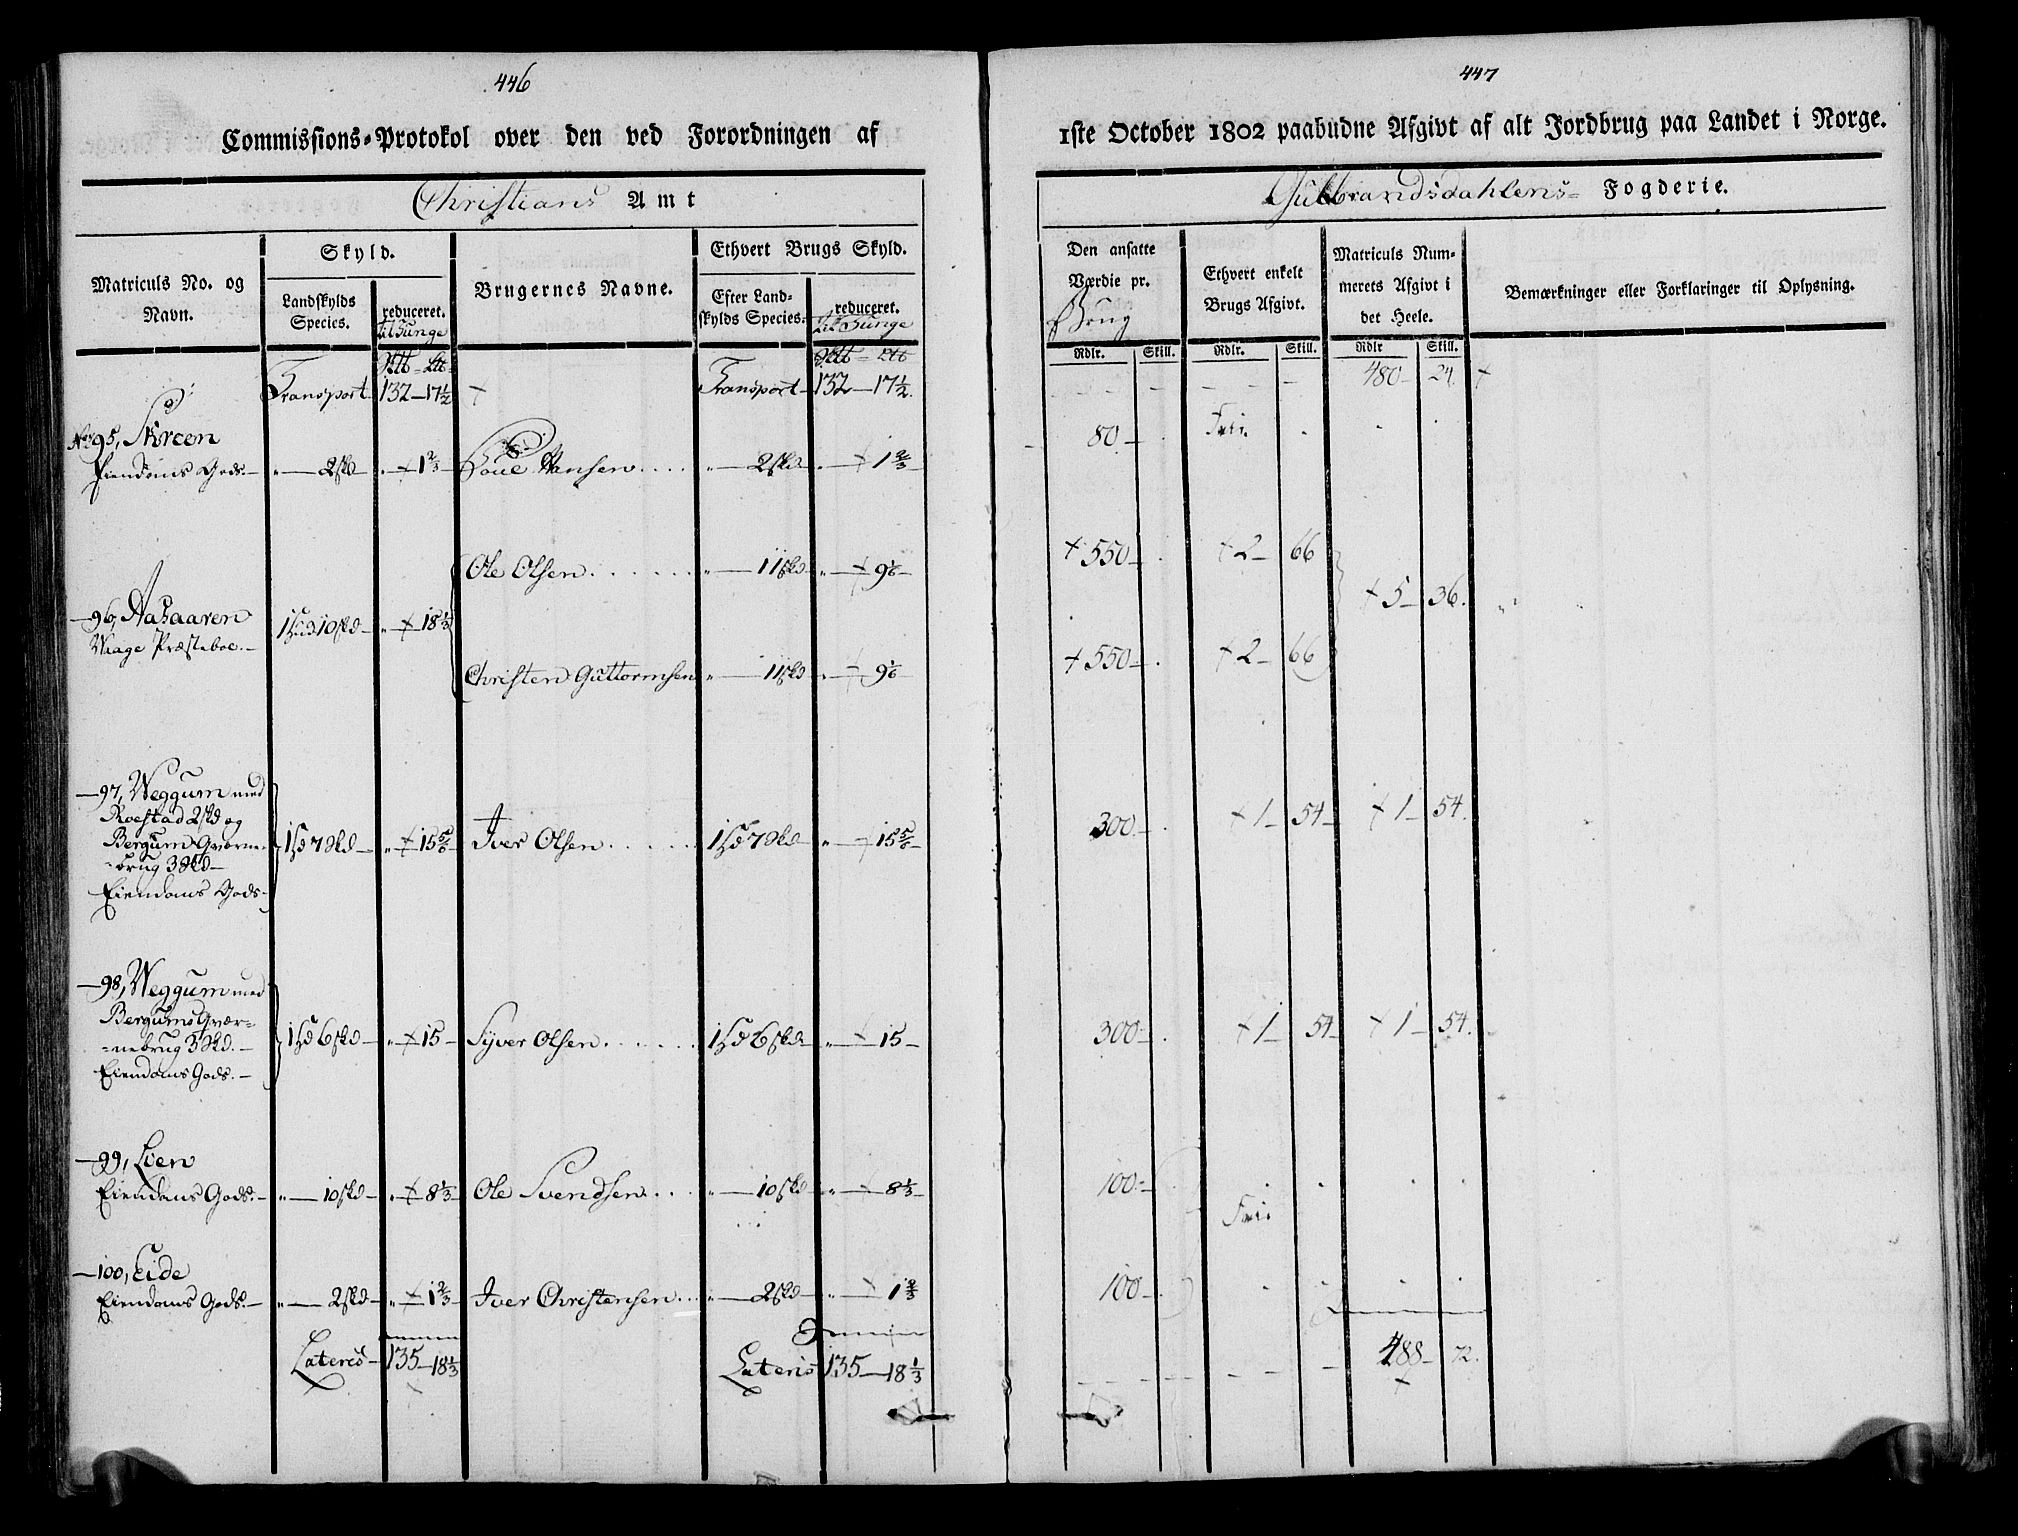 446
Commissions-Protokol over den ved Forordningen af
Christians Amt
Matriculs No. og Navn.
Skyld.
Landskylds Species.
reduceret.
til Tunge
Brugernes Navne.
Ethvert Brugs Skyld.
Efter Landskylds Species.
reduceret.
til Tunge
Transport 132-17½ Transport 132-17½
No 95, Skreen
Eiendoms Gods. " 2 skd " 1⅔ Poul Hansen " 2 skd " 1⅔
Ole Olsen " 11 skd " 9⅙
96, Aasaaren 1 Hud 10 skd " 18⅓
Waage Præsteboe.
Christen Guttormsen " 11 skd " 9⅙
97, Weggum med
Roestad 2 skd og
Bergums Qværne-
=brug 3 Skd 1 Hd 7 Skd " 15⅚ Iver Olsen 1 Hd 7 Skd " 15⅚
Eiendoms Gods.
98, Weggum med
Bergums Qvær=
=nebrug 3 Skd. 1 Hd 6 skd " 15 Syver Olsen 1 Hd 6 skd " 15
Eiendoms Gods.
99, Lien
Eiendoms Gods. " 10 skd " 8⅓ Ole Svendsen " 10 skd " 8⅓
100, Eide
Eiendoms Gods. " 2 skd " 1⅔ Iver Christensen " 2 skd " 1⅔
Lateris 135-18⅓ Lateris 135-18⅓
447
1ste October 1802 paabudne Afgivt af alt Jordbrug paa Landet i Norge.
Gulbrandsdahlens Fogderie.
Den ansatte Værdie pr.
Brug
Ethvert enkelt Brugs Afgivt.
Matriculs Nummerets Afgivt i det Heele.
Bemærkninger eller Forklaringer til Oplysning.
Rdlr. Skill. Rdlr. Skill. Rdlr Skill.
480 24
80 Frii
550 2 66
5 36
550 2 66
300 1 54 1 54
300 1 54 1 54
100
Frii
100
488 72